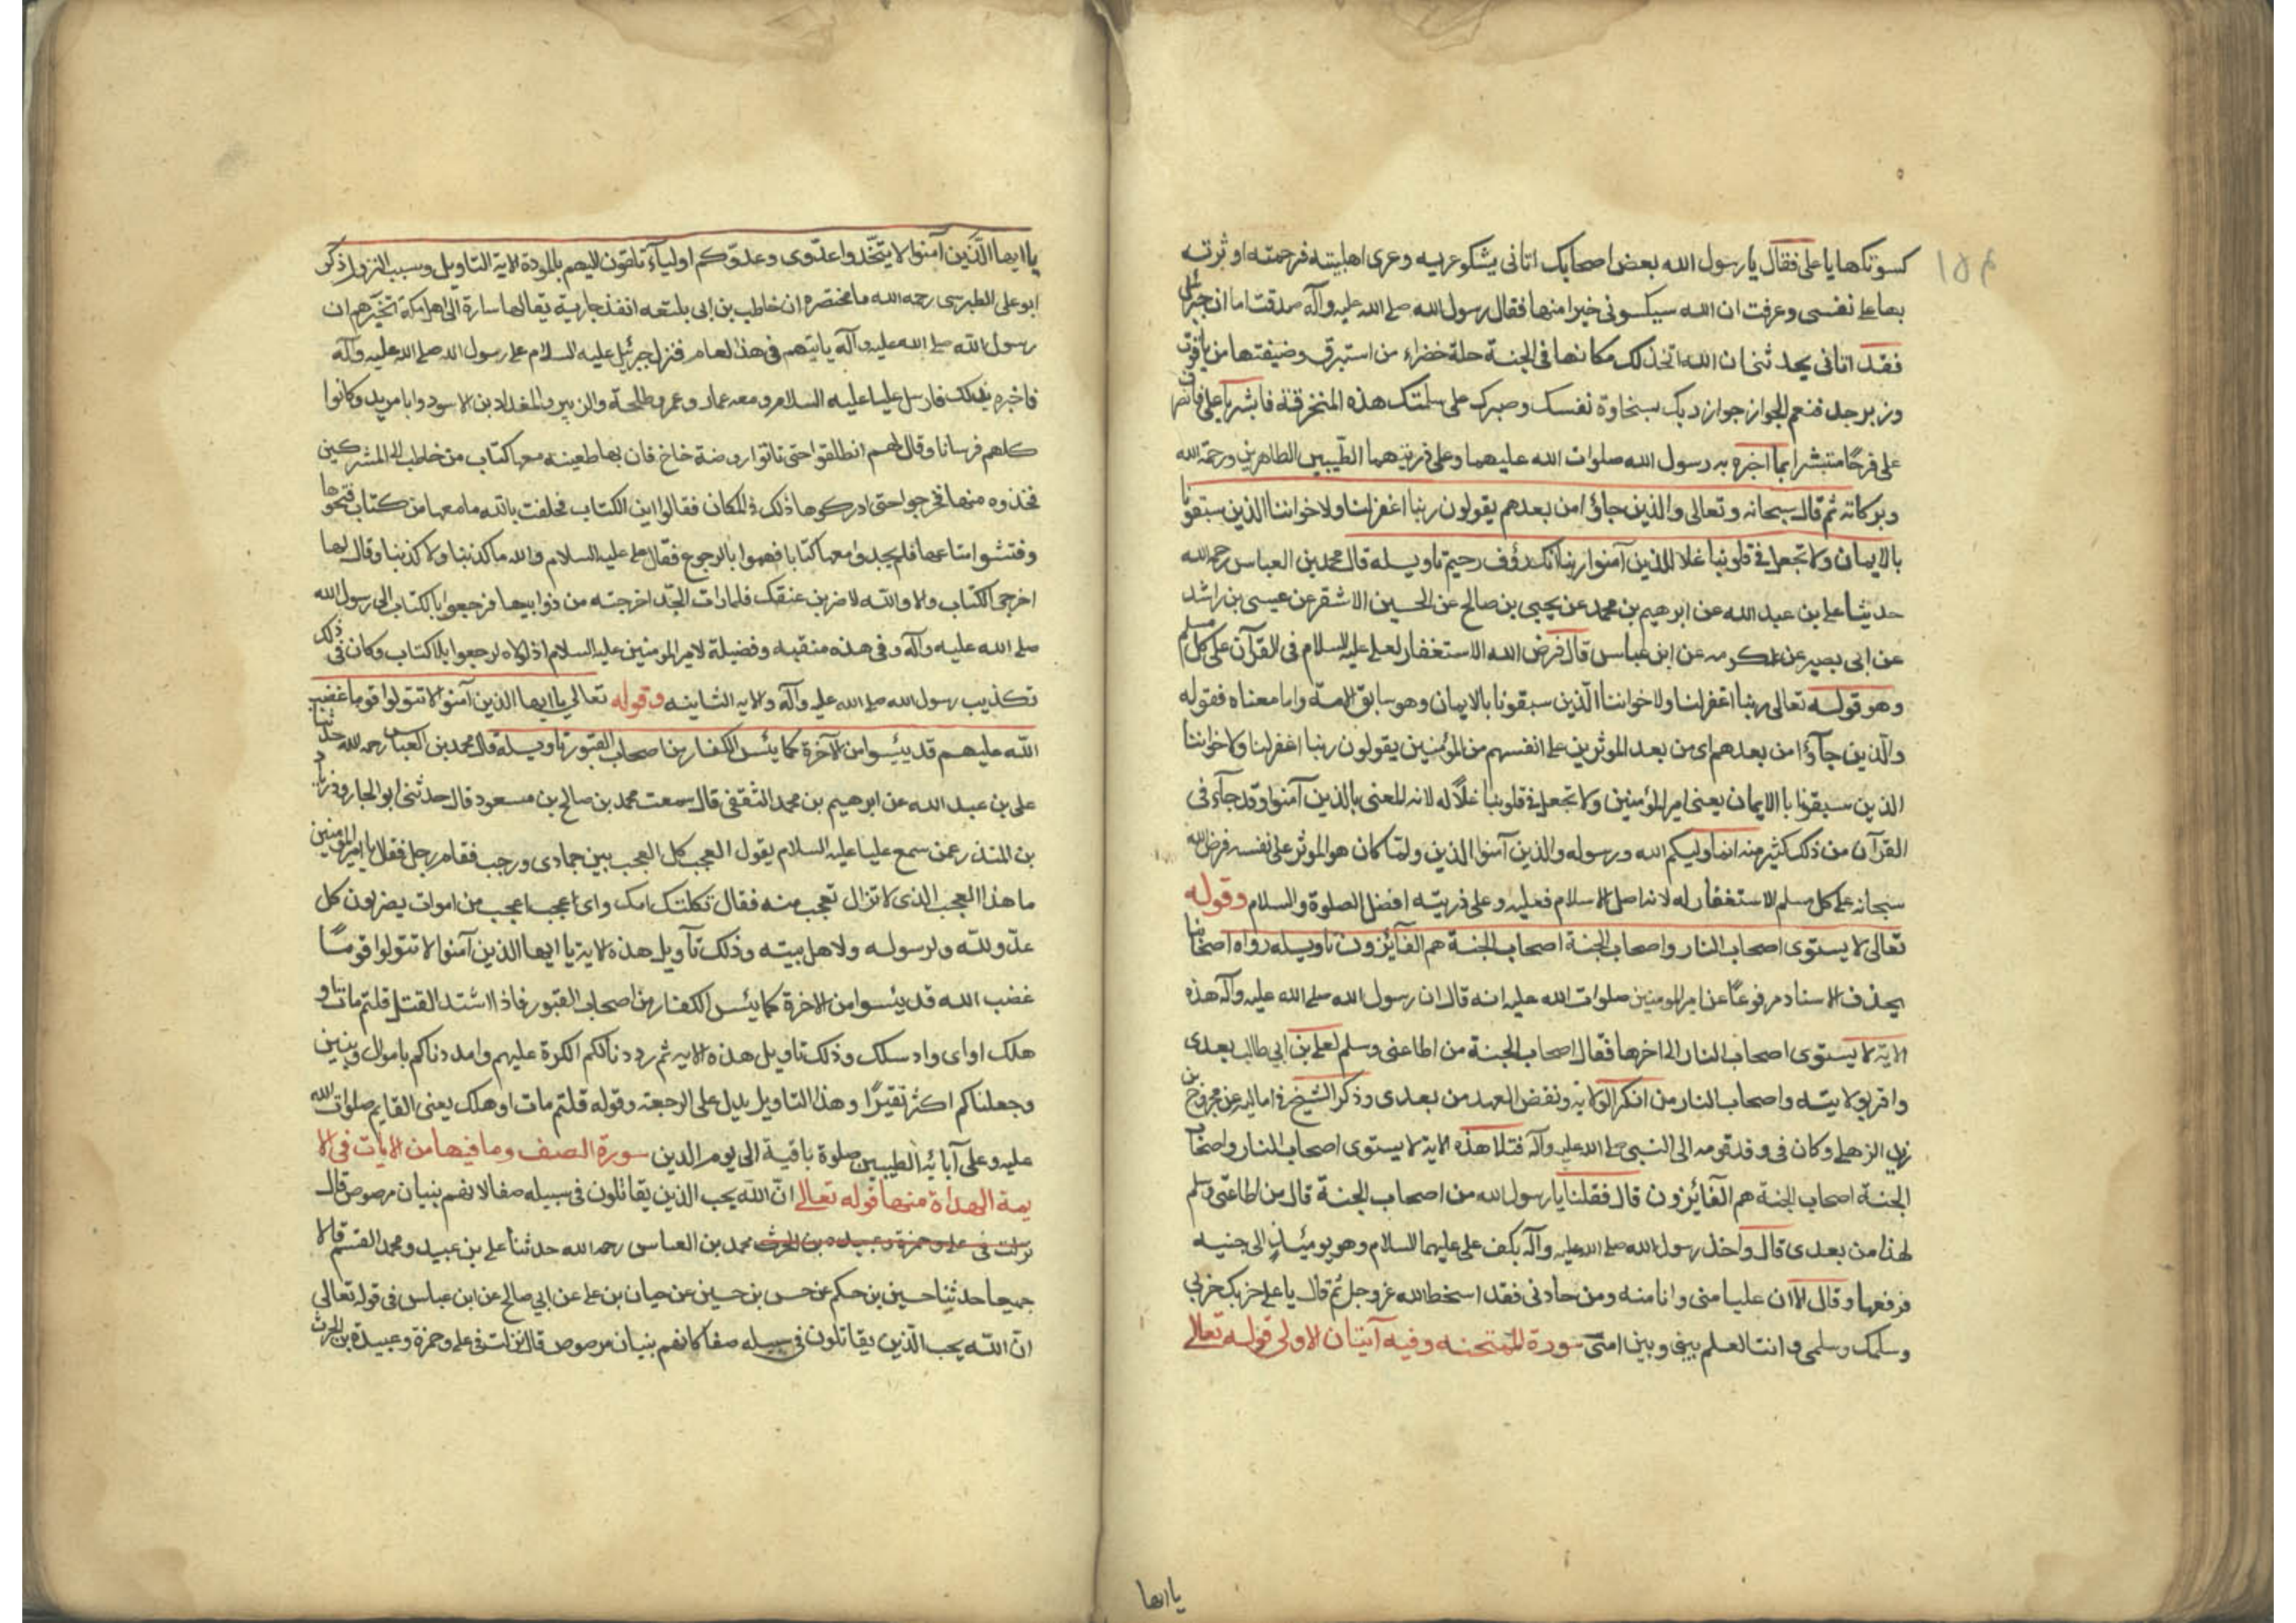 ١٥٤
كسوتكها يا على فقال يا رسول الله بعض اصحابك اتانى يشكو عريه وعرى اهلبيته فرحمته اوثرته
بها على نفسى وعرفت ان الله سيكسونى خيرا منها فقال رسول الله صلى الله عليه وآله صدقت اما ان جبرئيل
فقد اتانى يحدثنى ان الله اتخذ لك مكانها فى الجنة حلة خضراء من استبرق وضيفتها من ياقوت
وزبرجد فنعم الجواز جواز ربك بسخاوة نفسك وصبرك على سلمتك هذه المنخرقة فابشر يا على فانصرف
على فرحًا مستبشرا بما اخبره به رسول الله صلوات الله عليهما وعلى ذريتهما الطيبين الطاهرين ورحمة الله
وبركاته ثم قال سبحانه وتعالى والذين جاؤا من بعدهم يقولون ربنا اغفر لنا ولاخواننا الذين سبقونا
بالايمان ولا تجعل فى قلوبنا غلا للذين آمنوا ربنا انك رؤف رحيم تاويله قال محمد بن العباس رحمه الله
حدثنا على بن عبد الله عن ابرهيم بن محمد عن يحيى بن صالح عن الحسين الاشقر عن عيسى بن راشد
عن ابى بصير عن عكرمه عن ابن عباس قال فرض الله الاستغفار لعلى عليه السلام فى القرآن على كل مسلم
وهو قوله تعالى ربنا اغفر لنا ولاخواننا الذين سبقونا بالايمان وهو سابق الامة واما معناه فقوله
والذين جآؤا من بعدهم اى من بعد الموثرين على انفسهم من المؤمنين يقولون ربنا اغفر لنا ولاخواننا
الذين سبقونا بالايمان يعنى امير المؤمنين ولا تجعل فى قلوبنا غلاً له لانه المعنى بالذين آمنوا وقد جآء فى
القرآن من ذلك كثير منه انما وليكم الله ورسوله والذين آمنوا الذين ولمّا كان هو الموثر على نفسه فرض الله
سبحانه على كل مسلم الاستغفار له لانه اصل الاسلام فعليه وعلى ذريته افضل الصلوة والسلام وقوله
تعالى لا يستوى اصحاب النار واصحاب الجنة اصحاب الجنة هم الفآئزون تاويله رواه اصحابنا
بحذف الاسناد مرفوعًا عن امير المومنين صلوات الله عليه انه قال ان رسول الله صلى الله عليه وآله هذه
الاية لا يستوى اصحاب النار الى اخرها فقال اصحاب الجنة من اطاعنى وسلم لعلى بن ابي طالب بعدى
واقر بولايته واصحاب النار من انكر الولاية ونقض العهد من بعدى وذكر الشيخ فى اماليه عن مجروح بن
زيد الزهلى وكان فى وفد قومه الى النبى صلى الله عليه وآله فتلا هذه الاية لا يستوى اصحاب النار واصحاب
الجنة اصحاب الجنة هم الفآئزون قال فقلنا يا رسول الله من اصحاب الجنة قال من اطاعنى وسلم
لهذا من بعدى قال واخذ رسول الله صلى الله عليه وآله بكف على عليهما السلام وهو يومئذٍ الى جنبه
فرفعها وقال الا ان عليا منى وانا منه ومن حادنى فقد اسخط الله عز وجل ثم قال يا على حربك حربى
وسلمك سلمى وانت العلم بينى وبين امتى سورة الممتحنه وفيه آيتان الاولى قوله تعالى
يا ايها
يا ايها الذين آمنوا لا يتخذوا عدوى وعدوكم اوليآء تلقون اليهم بالمودة الاية التاويل وسبب النزول ذكر
ابو على الطبرسى رحمه الله ما مختصره ان خاطب بن ابى بلتعه انفذ جارية يقال لها سارة الى اهل مكة تخبرهم ان
رسول الله صلى الله عليه وآله ياتيهم فى هذا لعام فنزل جبرئيل عليه السلام على رسول الله صلى الله عليه وآله
فاخبره بذلك فارسل عليا عليه السلام ومعه عمار وعمر وطلحة والزبير والمقداد بن الاسود وابا مريد وكانوا
كلهم فرسانا وقال لهم انطلقوا حتى تاتوا روضة خاخ فان بها ظعينه معها كتاب من خاطب الى المشركين
فخذوه منها فخرجوا حتى ادركوها ذلك فى المكان فقالوا اين الكتاب فحلفت بالله ما معها من كتاب فنحوها
وفتشوا متاعها فلم يجدوا معها كتابا فهموا بالرجوع فقال على عليه السلام والله ما كذبنا ولا كذبنا وقال لها
اخرجى الكتاب والا والله لاضربن عنقك فلما رات الجد اخرجته من ذوابيها فرجعوا بالكتاب الى رسول الله
صلى الله عليه وآله وفى هذه منقبه وفضيلة لامير المومنين عليه السلام اذ لولاه لرجعوا بلا كتاب وكان فى ذلك
تكذيب رسول الله صلى الله عليه وآله والايه الثانيه وقوله تعالى يا ايها الذين آمنوا لا تتولوا قوما غضب
الله عليهم قد يئسوا من الآخرة كما يئس الكفار من اصحاب القبور تاويله قال محمد بن العباس رحمه الله حدثنا
على بن عبد الله عن ابرهيم بن محمد الثقفى قال سمعت محمد بن صالح بن مسعود قال حدثنى ابو الجارود زياد
بن المنذر عمن سمع عليا عليه السلام يقول العجب كل العجب بين جمادى ورجب فقام رجل فقال يا امير المومنين
ما هذا العجب الذى لا تزال تعجب منه فقال ثكلتك امك واى عجب اعجب من اموات يضربون كل
عدو لله ولرسوله ولاهل بيته وذلك تآويل هذه الاية يا ايها الذين آمنوا لا تتولوا قومًا
غضب الله قد يئسوا من الاخرة كما يئس الكفار من اصحاب القبور فاذا اشتد القتل قلتم مات او
هلك او اى واد سلك وذلك تاويل هذه الايه ثم رددنا لكم الكرة عليهم وامددناكم باموال وبنين
وجعلناكم اكثر نفيرًا وهذا التاويل يدل على الرجعة وقوله قلتم مات او هلك يعنى القايم صلوات الله
عليه وعلى آبائه الطيبين صلوة باقية الى يوم الدين سورة الصف وما فيها من الايات فى الا
يمة الهداة منها قوله تعالى انّ الله يحب الذين يقاتلون فى سبيله صفا كانهم بنيان مرصوص قال
نزلت فى على وحمزة وعبيده بن الحرث محمد بن العباس رحمه الله حدثنا على بن عبيد ومحمد القسم قالا
جميعا حدثنا حسين بن حكم عن حسن بن حسين عن حيان بن على عن ابي صالح عن ابن عباس فى قوله تعالى
انّ الله يحب الذين يقاتلون فى سبيله صفا كانهم بنيان مرصوص قال نزلت فى على وحمزة وعبيدة بن الحرث